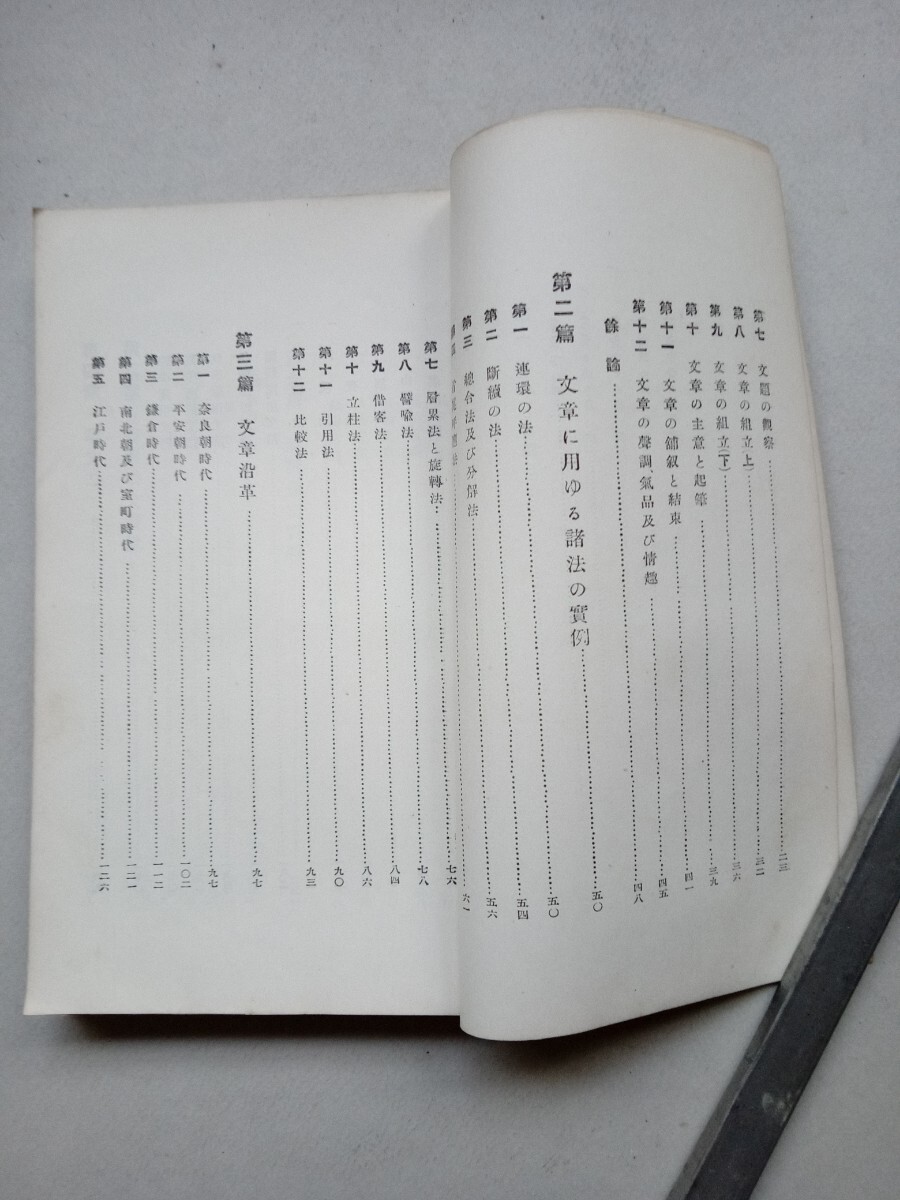 第七 文題の觀察……二三
第八 文章の組立(上)……三二
第九 文章の組立(下)……三六
第十 文章の主意と起筆……三九
第十一 文章の舖叙と結束……四一
第十二 文章の聲調氣品及び情趣……四五
餘論……四八
第二篇 文章に用ゆる諸法の實例……五〇
第一 連環の法……五〇
第二 斷續の法……五四
第三 總合法及び分解法……五六
六一
七六
第七 層累法と旋轉法……七八
第八 譬喩法……八四
第九 借客法……八六
第十 立柱法……九〇
第十一 引用法……九三
第十二 比較法
第三篇 文章沿革……九七
第一 奈良朝時代……九七
第二 平安朝時代……一〇二
第三 鎌倉時代……一一二
第四 南北朝及び室町時代……一二一
第五 江戸時代……一二六